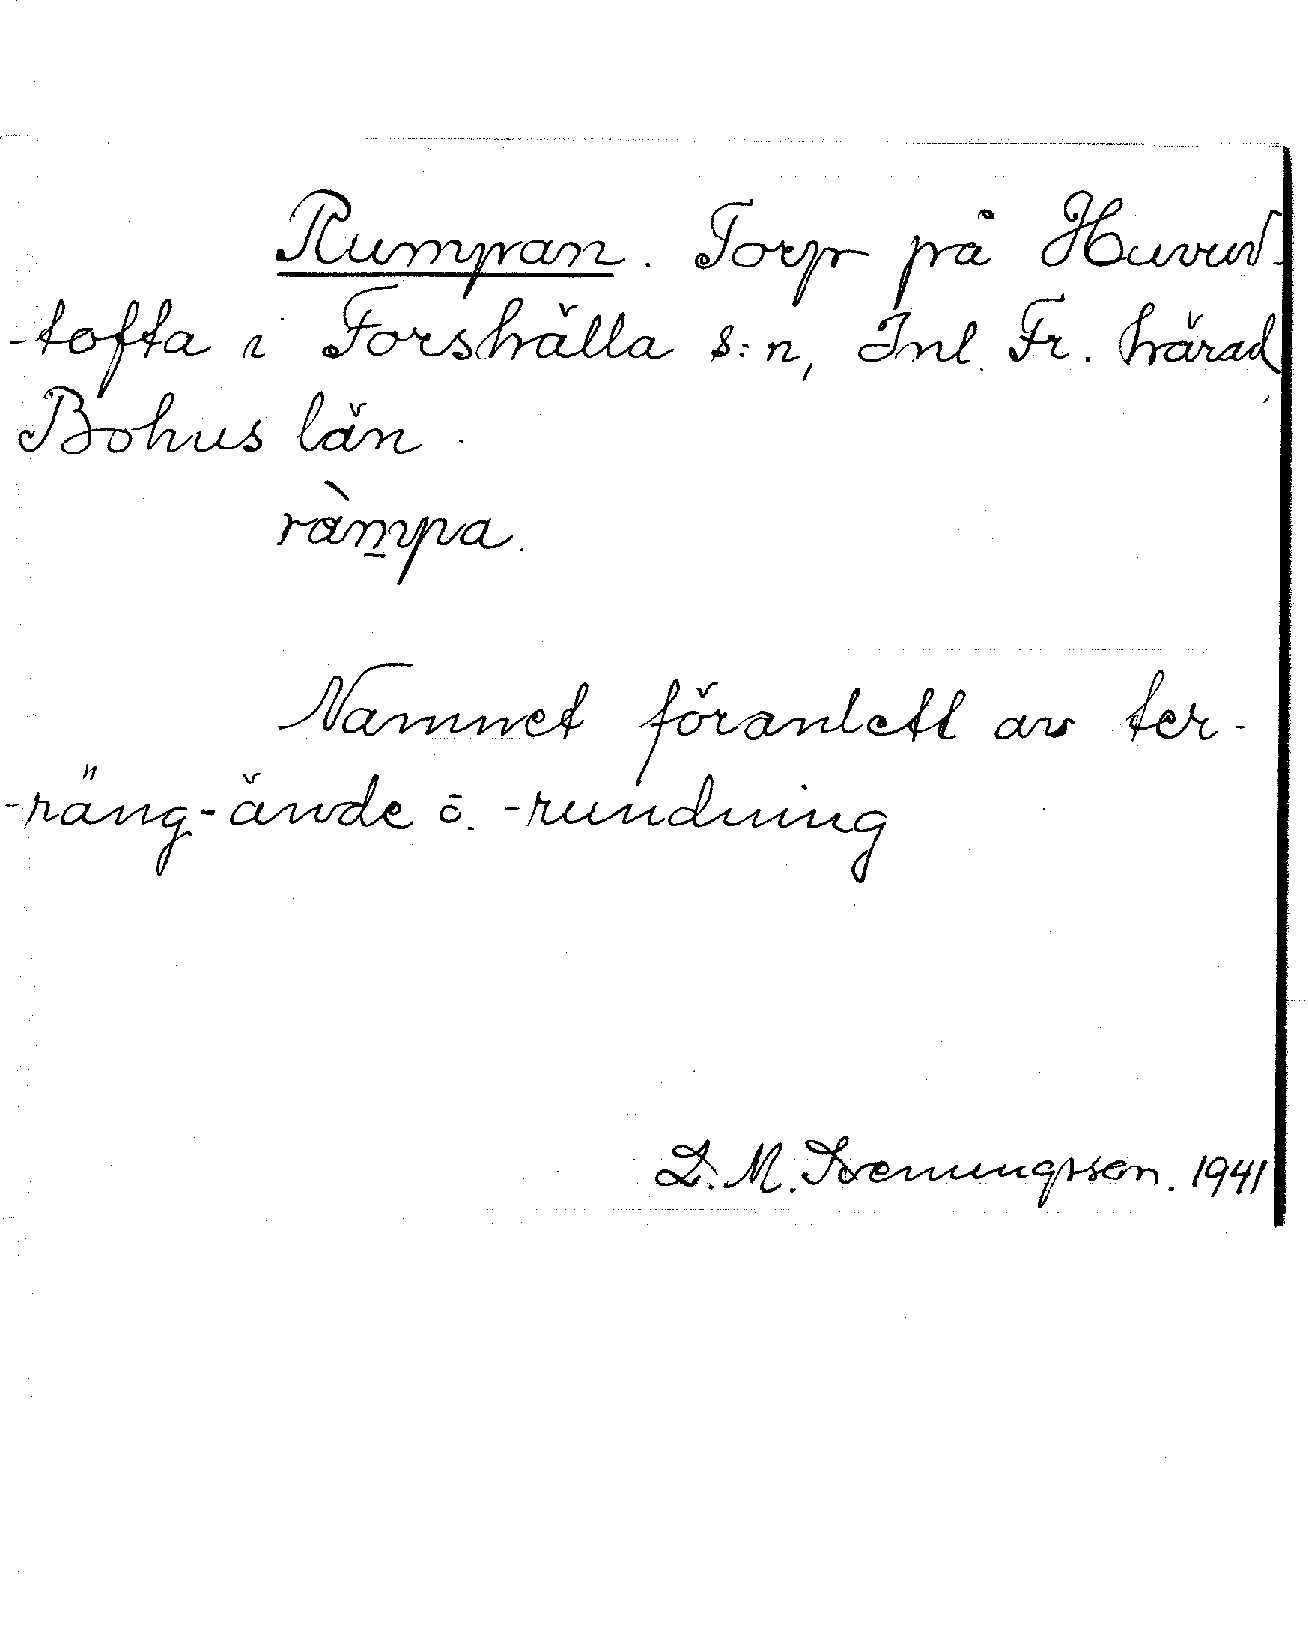 Rumpan. Torp på Huvud-
-tofta i Forshälla s:n, Inl. Fr. härad,
Bohus län.
ràm̲pa.
Namnet föranlett av ter-
-räng-ände o. -rundning
D. M. Svenungsson. 1941